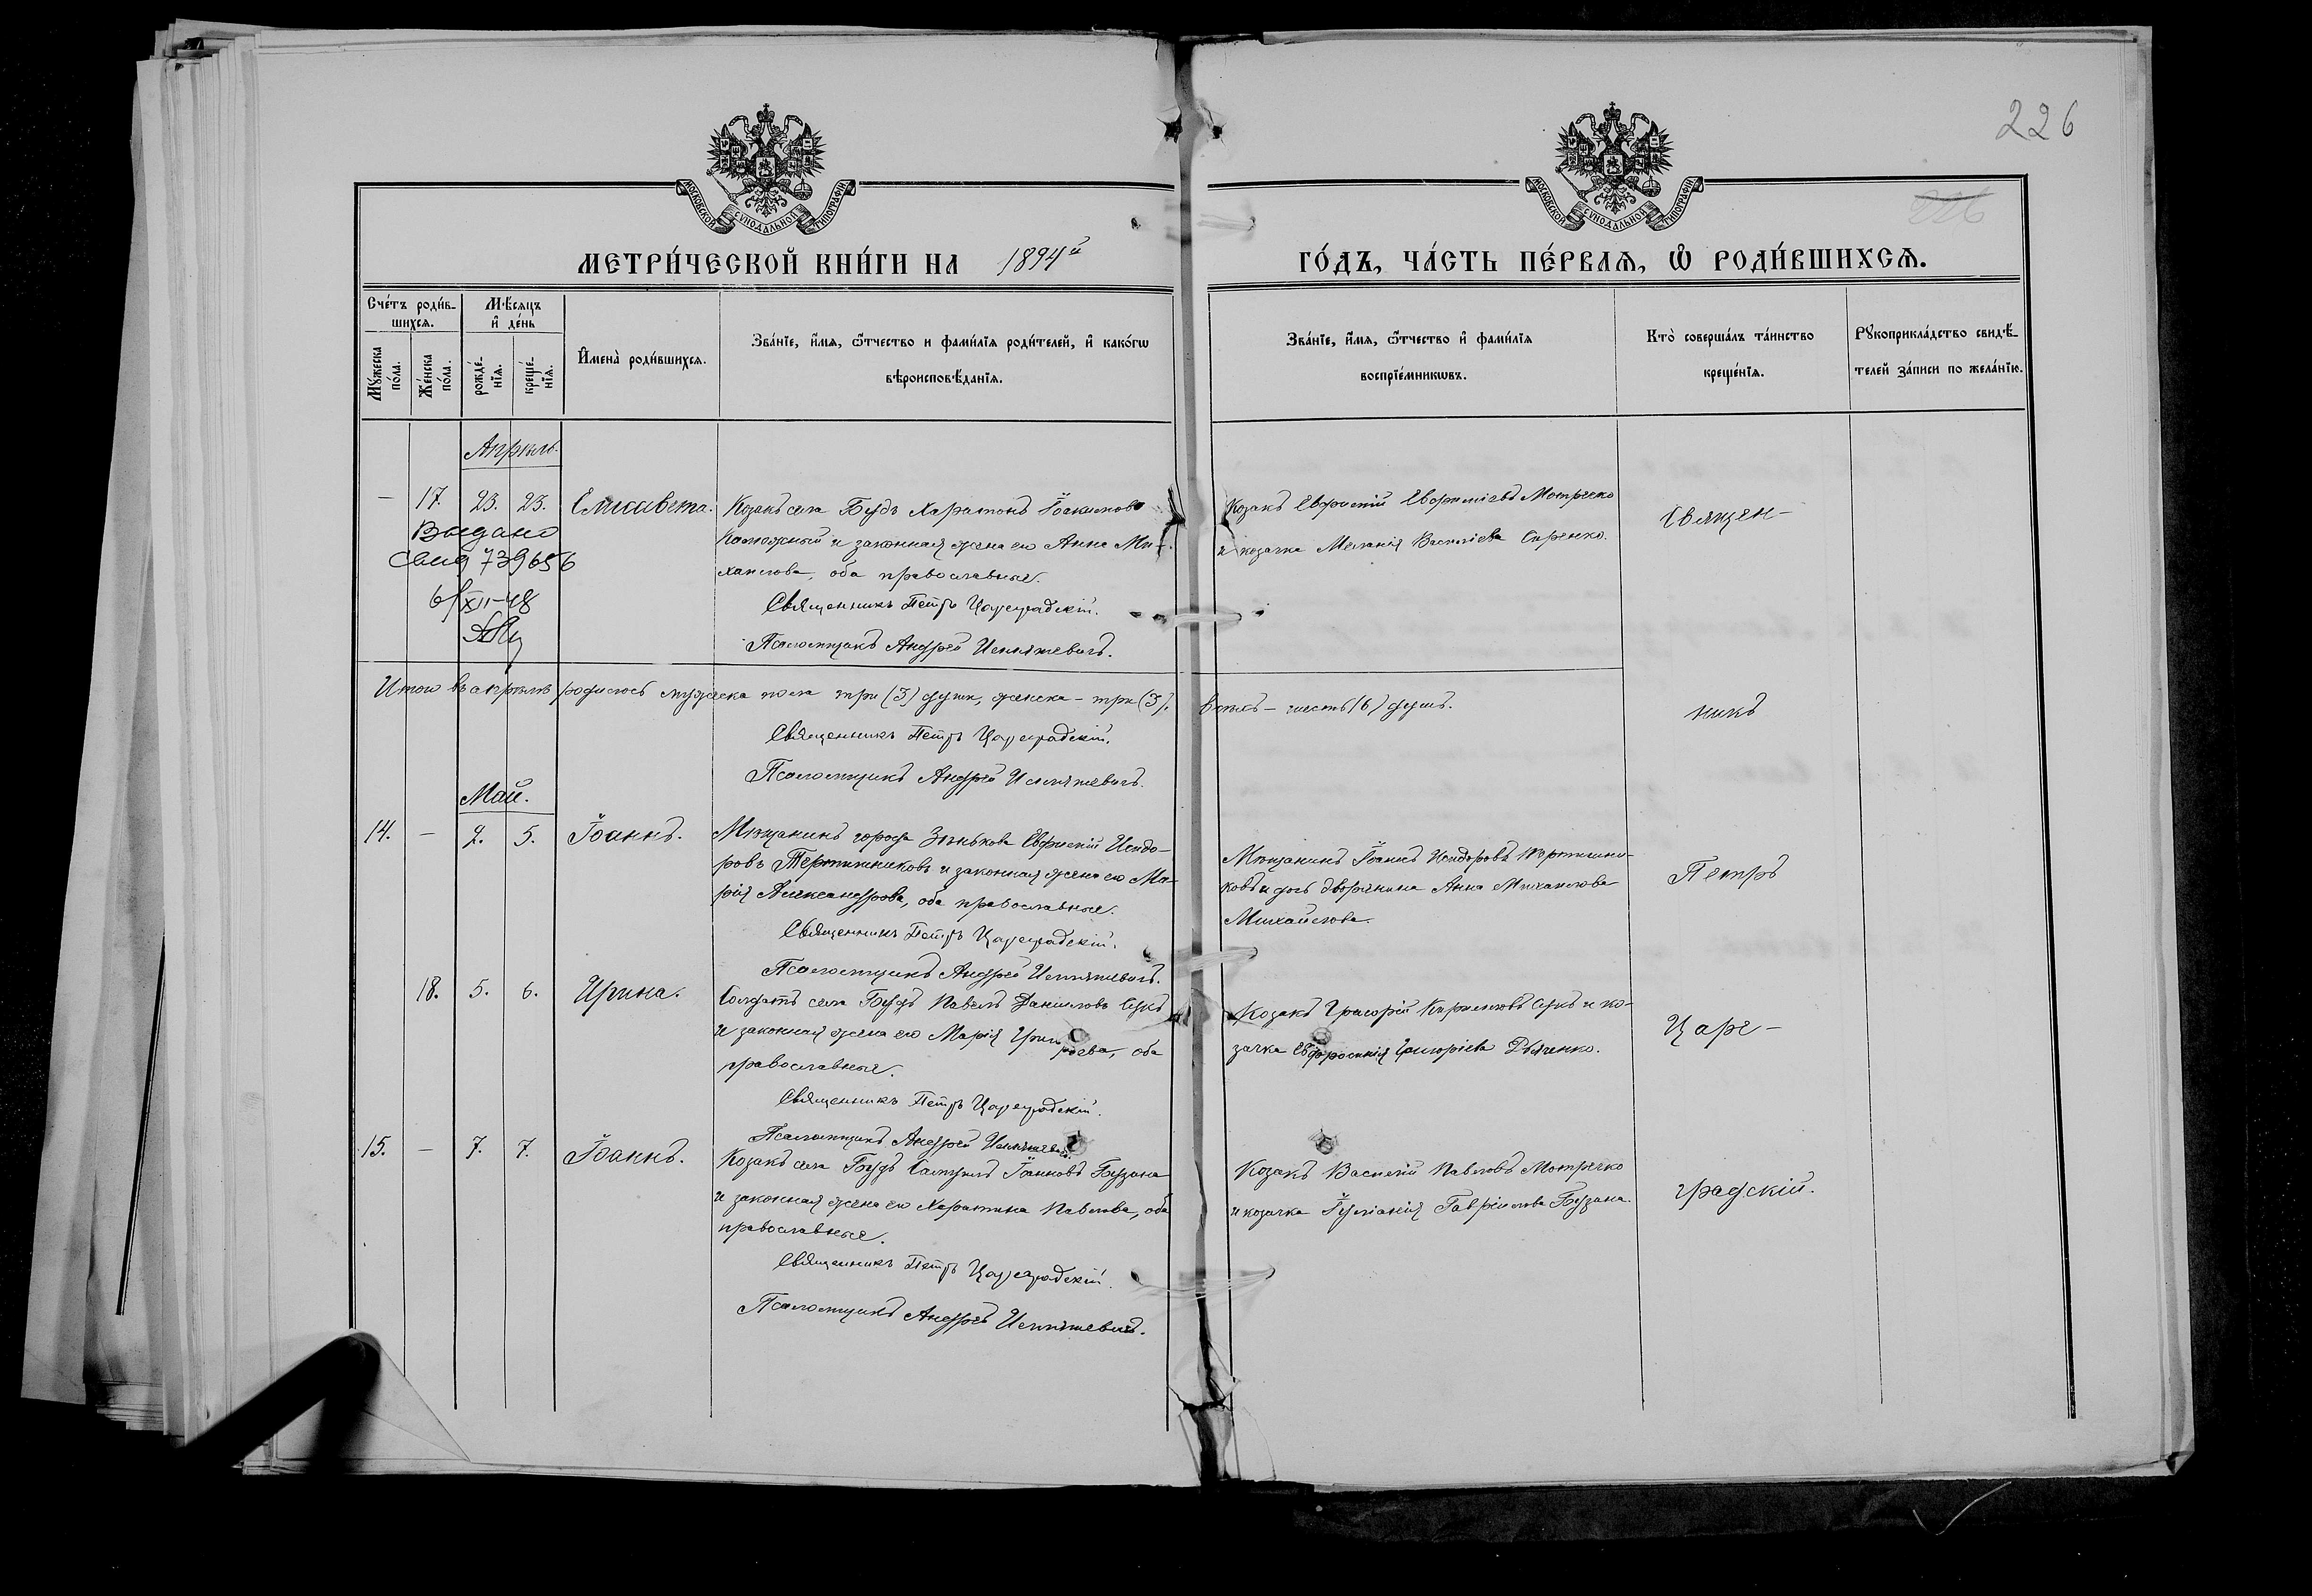 226
226
МОСКОВСКОЙ СѴНОДАЛЬНОЙ ТИПОГРАФІИ
МОСКОВСКОЙ СѴНОДАЛЬНОЙ ТИПОГРАФІИ
МЕТРИ́ЧЕСКОЙ КНИ́ГИ НА 1894й
ГО́ДЪ, ЧА́СТЬ ПЕ́РВАЯ, Ѽ РОДИ́ВШИХСѦ.
Сче́тъ роди́в-
шихсѧ.
Мѣ́сяцъ
и҆ де́нь
Мꙋ́жеска
по́ла.
Же́нска
по́ла.
рожде́-
нїѧ.
креще́-
нїѧ.
И҆мена̀ роди́вшихсѧ.
Зва́нїе, и҆́мѧ, ѻ҆́тчество и фами́лїѧ роди́телей, и҆ како́гѡ
вѣроисповѣ́данїѧ.
Зва́нїе, и҆́мѧ, ѻ҆́тчество и҆ фами́лїѧ
воспрїе́мникѡвъ.
Кто̀ соверша́лъ та́инство
креще́нїѧ.
Рꙋкоприкла́дство свидѣ́-
телей за́писи по жела́нїю.
Апрѣль.
— 17. 23. 23. Елисавета.
Козакъ села Будъ Харитонъ Іоакимовъ
и законная жена его Анна Ми-
хаилова, оба православные.
Священникъ Петръ Цареградскій.
Псаломщикъ Андрей
Козакъ Евфимій Евфиміевъ Мотречко
и козачка Меланія Василіева Сиренко.
Священ-
Выдано
свид 739656
6/XII-48
Итого въ апрѣлѣ родилось мужеска пола три (3) души, женска – три (3), всѣхъ – шесть (6) душъ.
Священникъ Петръ Цареградскій.
Псаломщикъ Андрей
никъ
Май.
14. — 2. 5. Іоаннъ.
Мѣщанинъ города Зѣнькова Евфимій Исидо-
ровъ и законная жена его Ма-
рія Александрова, оба православные.
Священникъ Петръ Цареградскій.
Псаломщикъ Андрей
Мѣщанинъ Іоаннъ Исидоровъ
ковъ и дочь дворянина Анна Михаилова
Михайлова.
Петръ
18. 5. 6. Ирина.
Солдатъ села Будъ Павелъ Даниловъ Сукъ
и законная жена его Марія Григорьева, оба
православные.
Священникъ Петръ Цареградскій.
Псаломщикъ Андрей
Козакъ Григорій Кирилловъ Сукъ и ко-
зачка Евфросинія Григоріева Дяченко.
Царе-
15. — 7. 7. Іоаннъ.
Козакъ села Будъ Самуилъ Іоанновъ Бузана
и законная жена его Харитина Павлова, оба
православные.
Священникъ Петръ Цареградскій.
Псаломщикъ Андрей
Козакъ Василій Павловъ Мотречко
и козачка Іуліанія Гавріилова Бузана.
градскій.